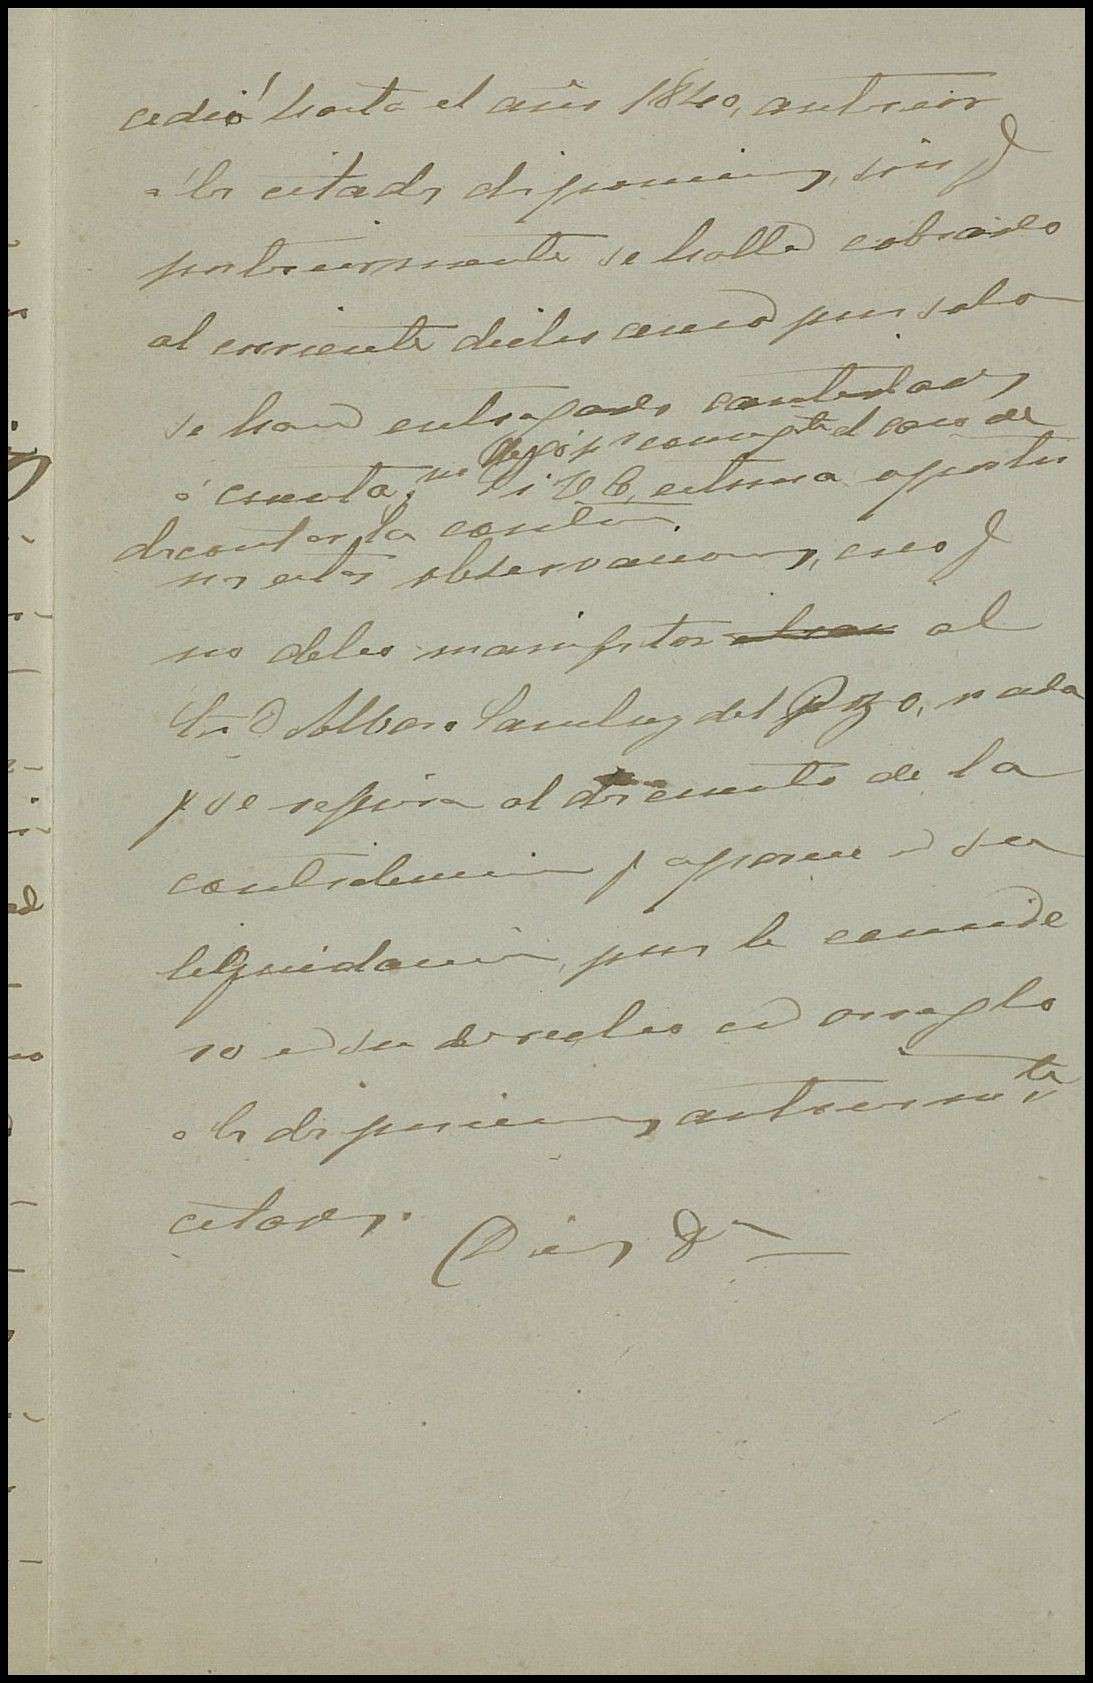 cedió hasta el año 1840, anterior
á las citadas disposiciones, sin q
posteriormente se halle cobrado
al corriente dicho censo pues solo
se han entregado cantidades
á cuenta, no el caso de
Si V. E. estima oportu
descontar la contribu
nas estas observaciones, creo q
no debo manifestar al
Sr D Alvaro Sanchez del Pozo, nada
q se refiera al descuento de la
contribucion q aparece en su
liquidacion, pues le considero
en su derecho con arreglo
a las disposiciones anteriormte
citadas. Dios &